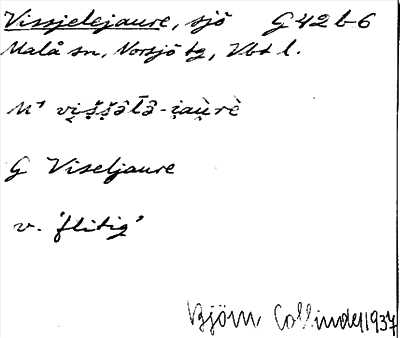 Vissjelejaure, sjö G 42 b-6
Malå sn, Norsjö tg, Vbt l.
G Viseljaure
v. 'flitig'
Björn Collinder 1937